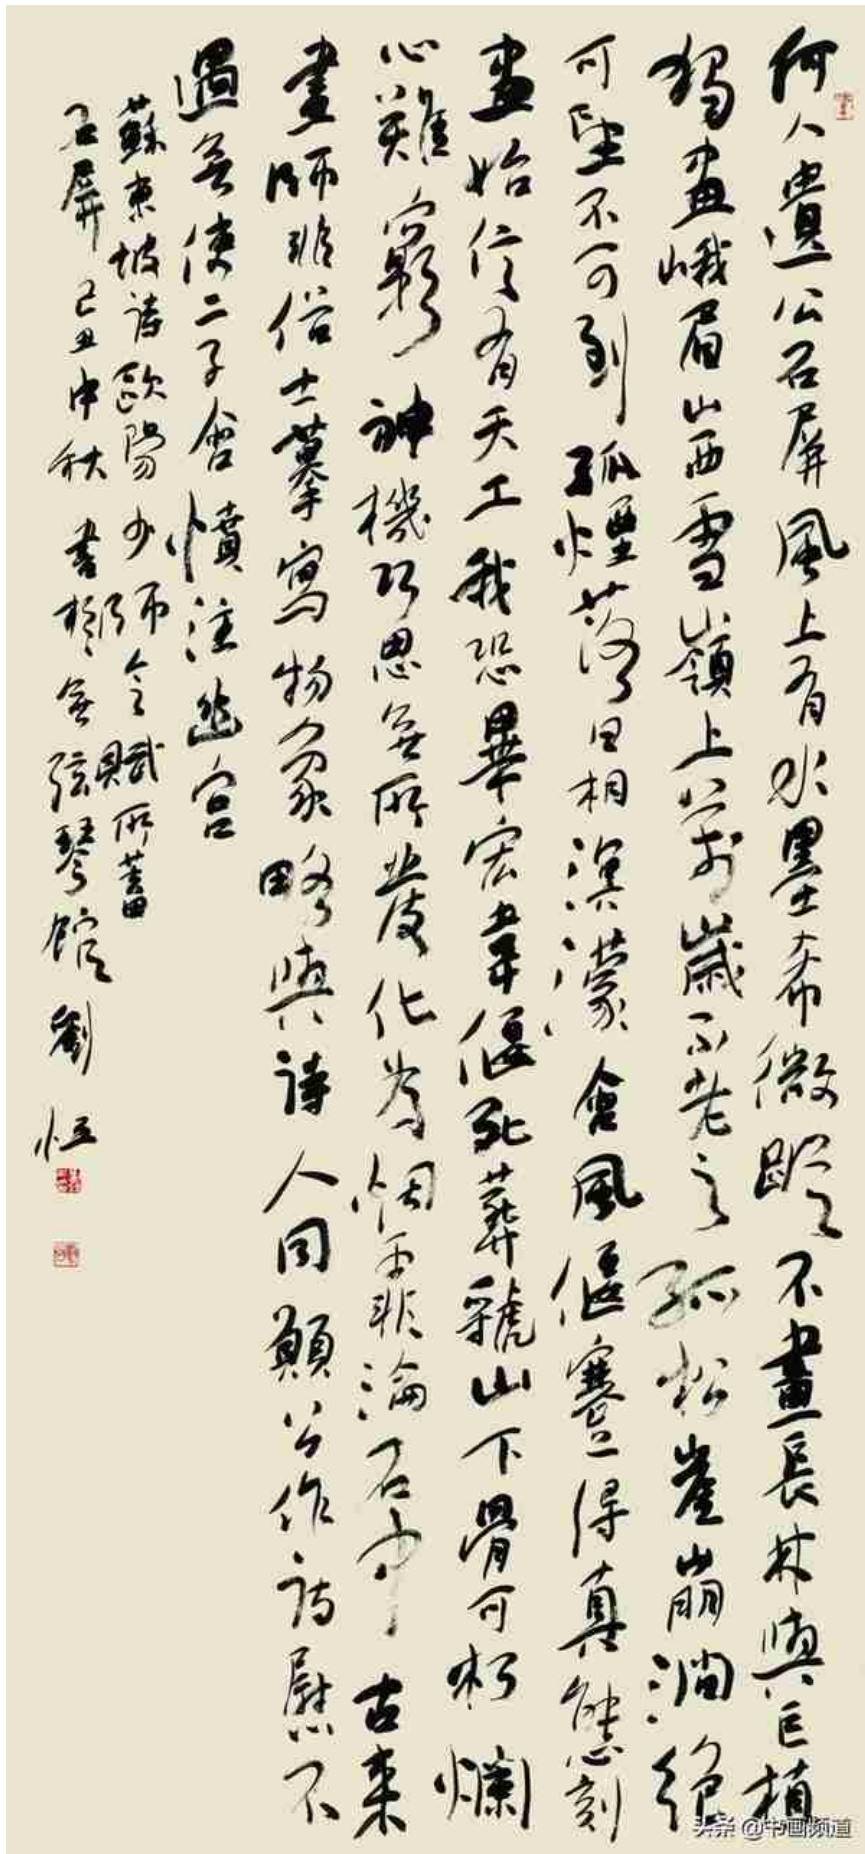 何人遺公石屏風上有水墨希微蹤不畫長林與巨植
獨畫峨眉山西雪嶺上萬歲不老之孤松崖崩澗絕
可望不可到孤煙落日相溟濛含風偃蹇得真態刻
畫始信有天工我恐畢宏韋偃死葬虢山下骨可朽爛
心難窮神機巧思無所發化為烟霏淪石中古來
畫師非俗士摹寫物象略與詩人同願公作詩慰不
遇無使二子含憤泣幽宮
蘇東坡詩歐陽少師令賦所蓄
石屏己丑中秋書於無弦琴館劉恒
头条 @书画频道